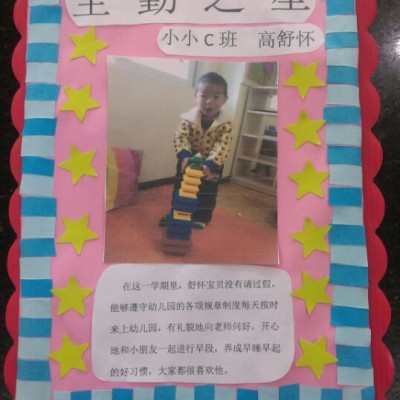 全勤之星
小小C班 高舒怀
在这一学期里，舒怀宝贝没有请过假，
能够遵守幼儿园的各项规章制度每天按时
来上幼儿园，有礼貌地向老师问好，开心
地和小朋友一起进行早段，养成早睡早起
的好习惯，大家都很喜欢他。